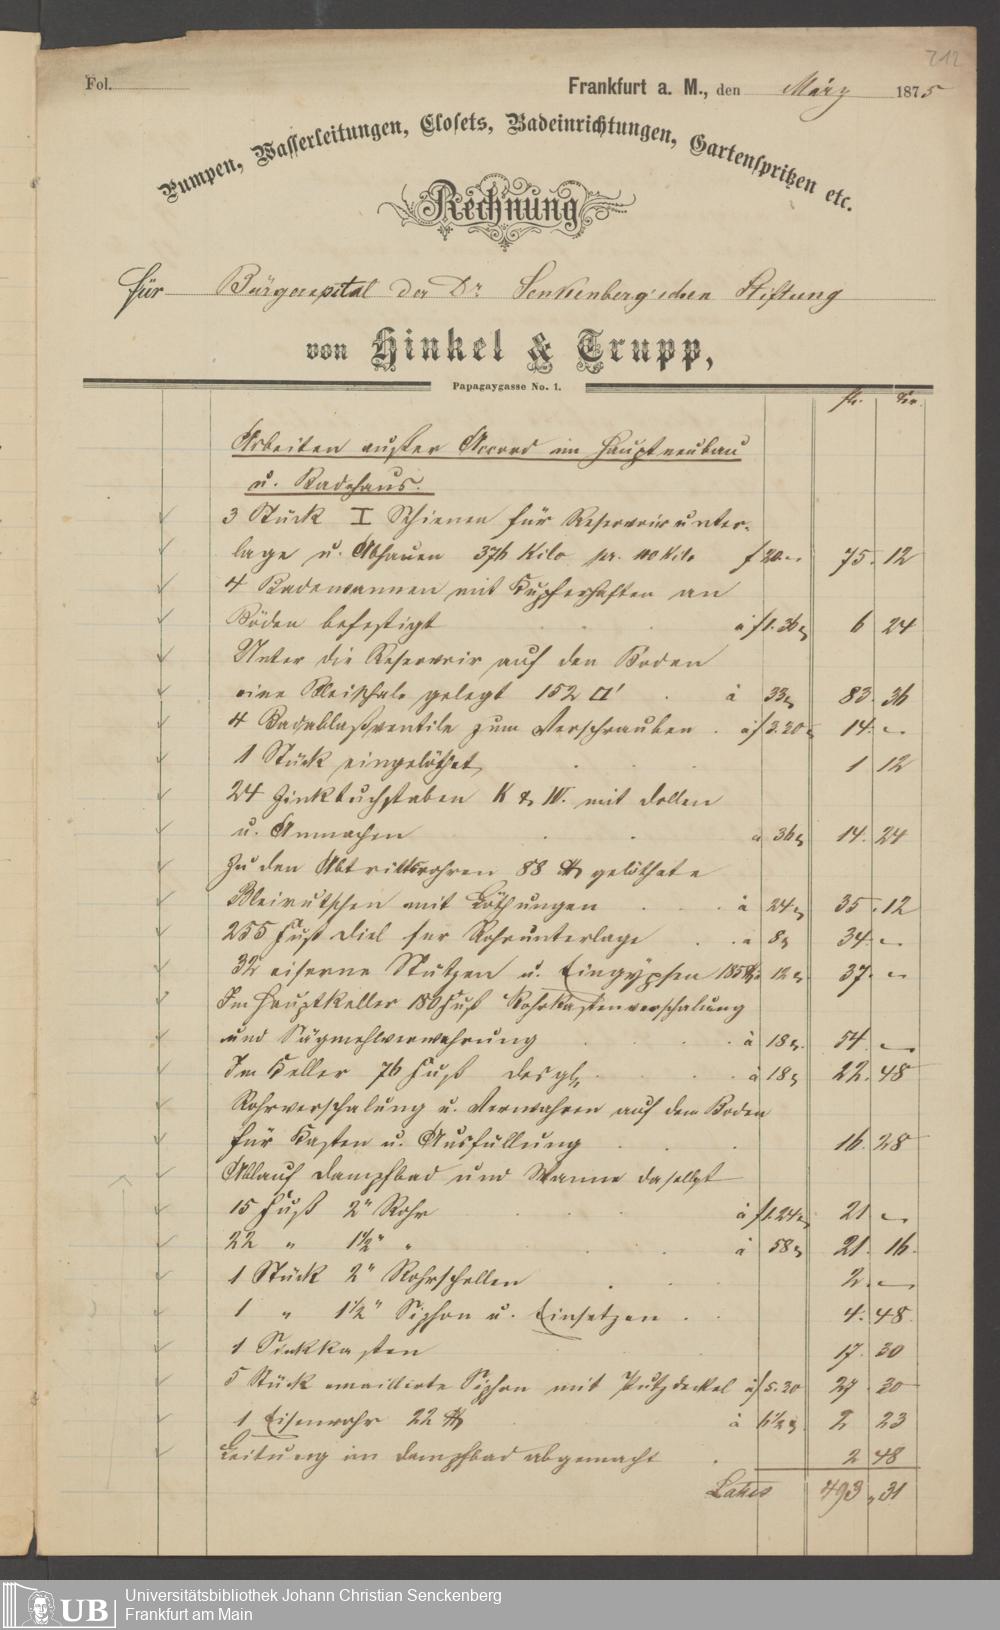 212
Fol.
Frankfurt a. M., den März 1875
Pumpen, Wasserleitungen, Closets, Badeinrichtungen, Gartenspritzen etc.
Rechnung
für Bürgerspital der Dr. Senkenberg'schen Stiftung
von Hinkel & Trupp,
Papagaygasse No. 1.
fl. kr.
Arbeiten außer Accord im Hauptneubau
u. Badehaus.
3 Stück I Schienen für Reservoir unter-
lage u. Abhauen 376 Kilo pr. 100 Kilo f 20.- 75. 12
4 Badewannen mit Kupferhaften an
Böden befestigt à f 1. 36 6 24
Unter die Reservoir auf den Boden
eine Bleischale gelegt 152 □' à 33 83. 36
4 Badablaßventile zum Verschrauben à f 3.30 14. -
1 Stück eingelöthet 1 12
24 Zinkbuchstaben K & W. mit Dollen
u. Anmachen à 36 14. 24
Zu den Abtrittsrohren 88 ℔ gelöthete
Bleirutschen mit Löthungen à 24 35. 12
255 Fuß Diel für Rohrunterlage à 8 34. -
32 eiserne Stützen u. Eingypsen 185 ℔ à 12 37. -
Im Hauptkeller 180 Fuß Rohrkastenverschalung
und Sägmehlverwahrung à 18 54. -
Im Keller 76 Fuß desgl. à 18 22. 48
Rohrverschalung u. Verwahren auf dem Boden
für Kasten u. Ausfüllung 16. 28
Ablauf Dampfbad und Wanne daselbst
15 Fuß 2" Rohr à f 1. 24 21 -
22 " 1½" " à 58 21. 16.
1 Stück 2" Rohrschellen 2. -
1 " 1½" Siphon u. Einsetzen 4. 48.
1 Sinkkasten 17. 30
5 Stück emaillirte Siphon mit Putzdeckel à f 5.30 27. 30
1 Eisenrohr 22 ℔ à 6½ 2 23
Leitung im Dampfbad abgemacht 2 48
Latus 493, 31
UB
Universitätsbibliothek Johann Christian Senckenberg
Frankfurt am Main